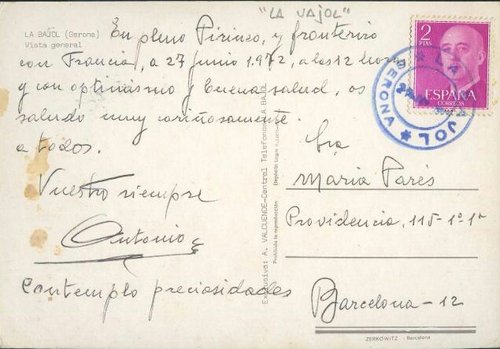 "LA VAJOL"
LA BAJOL (Gerona)
Vista general
En pleno Pirineo, y fronterizo
con Francia, a 27 junio 1972, a las 12 horas
y con optimismo y buena salud, os
saludo muy cariñosamente
a todos.
Vuestro siempre
Antonio
Contemplo preciosidades
Exclusiva: A. VALDUENDE-Central Telefonos-LA BAJOL
Prohibida la reproducción
2
PTAS
ESPAÑA
CORREOS
GERONA
Sra
Maria Parés
Providencia, 115-1º-1ª
Barcelona-12
ZERKOWITZ - Barcelona